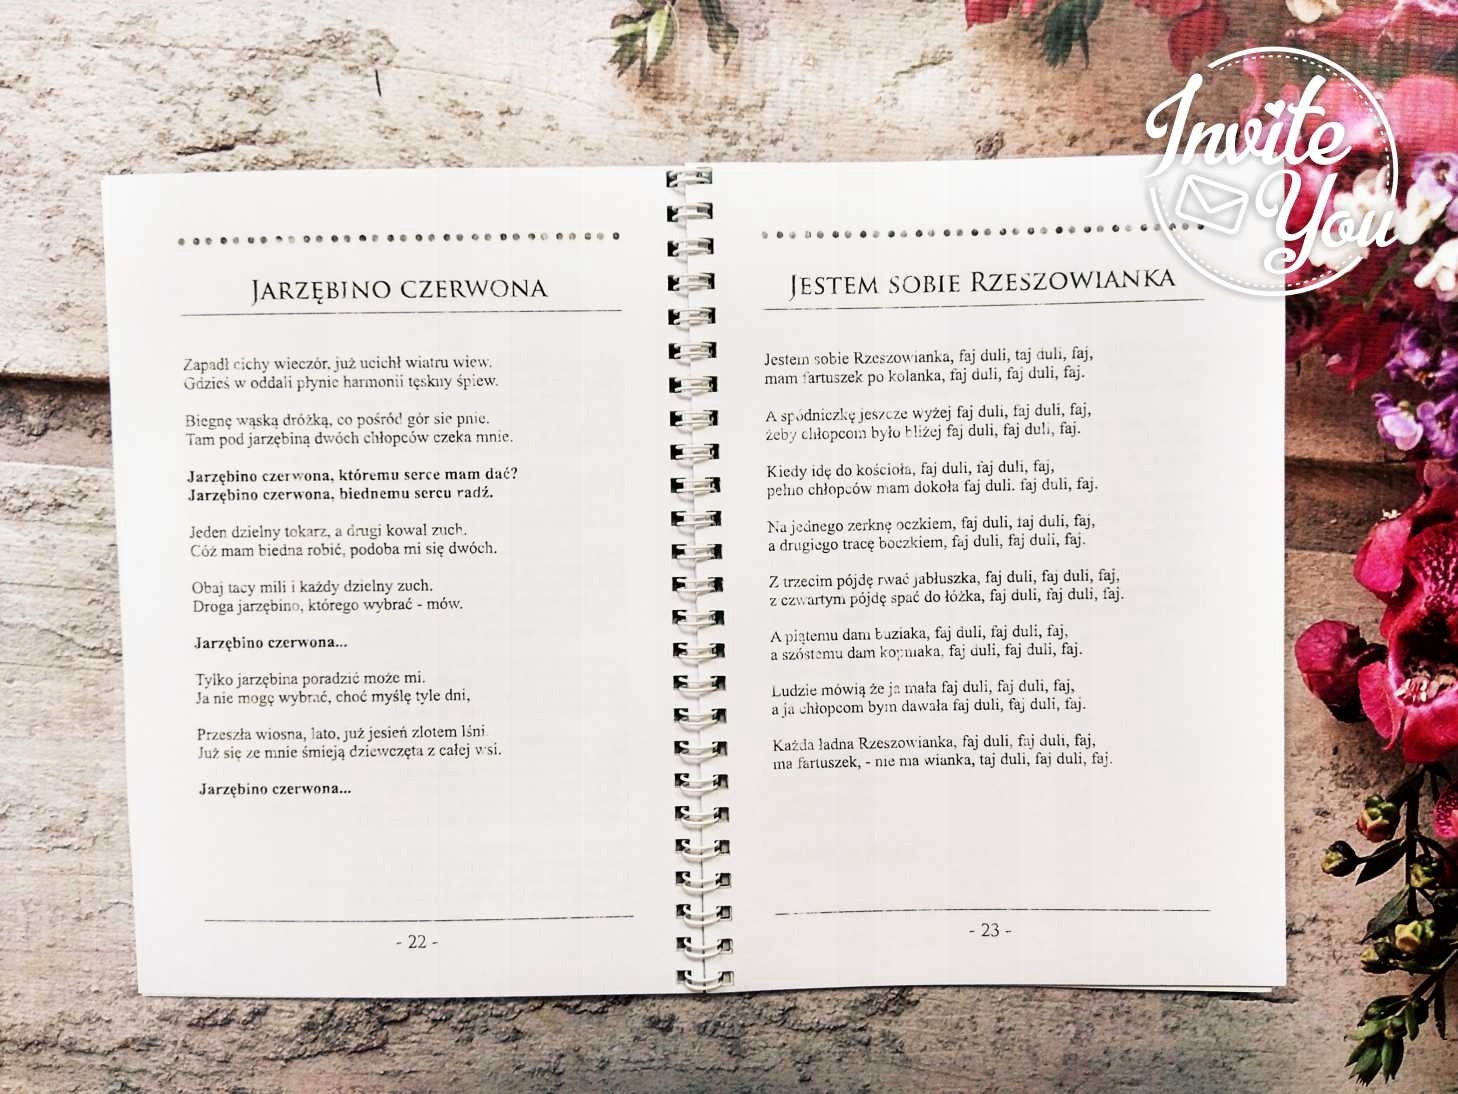 Invite
You
JARZĘBINO CZERWONA
Zapadł cichy wieczór, już ucichł wiatru wiew.
Gdzieś w oddali płynie harmonii tęskny śpiew.
Biegnę wąską dróżką, co pośród gór się pnie.
Tam pod jarzębiną dwóch chłopców czeka mnie.
Jarzębino czerwona, któremu serce mam dać?
Jarzębino czerwona, biednemu sercu radź.
Jeden dzielny tokarz, a drugi kowal zuch.
Cóż mam biedna robić, podoba mi się dwóch.
Obaj tacy mili i każdy dzielny zuch.
Droga jarzębino, którego wybrać - mów.
Jarzębino czerwona...
Tylko jarzębina poradzić może mi.
Ja nie mogę wybrać, choć myślę tyle dni,
Przeszła wiosna, lato, już jesień złotem lśni
Już się ze mnie śmieją dziewczęta z całej wsi.
Jarzębino czerwona...
- 22 -
JESTEM SOBIE RZESZOWIANKA
Jestem sobie Rzeszowianka, faj duli, faj duli, faj,
mam fartuszek po kolanka, faj duli, faj duli, faj.
A spódniczkę jeszcze wyżej faj duli, faj duli, faj,
żeby chłopcom było bliżej faj duli, faj duli, faj.
Kiedy idę do kościoła, faj duli, faj duli, faj,
pełno chłopców mam dokoła faj duli. faj duli, faj.
Na jednego zerknę oczkiem, faj duli, faj duli, faj,
a drugiego tracę boczkiem, faj duli, faj duli, faj.
Z trzecim pójdę rwać jabłuszka, faj duli, faj duli, faj,
z czwartym pójdę spać do łóżka, faj duli, faj duli, faj.
A piątemu dam buziaka, faj duli, faj duli, faj,
a szóstemu dam kopniaka, faj duli, faj duli, faj.
Ludzie mówią że ja mała faj duli, faj duli, faj,
a ja chłopcom bym dawała faj duli, faj duli, faj.
Każda ładna Rzeszowianka, faj duli, faj duli, faj,
ma fartuszek, - nie ma wianka, faj duli, faj duli, faj.
- 23 -